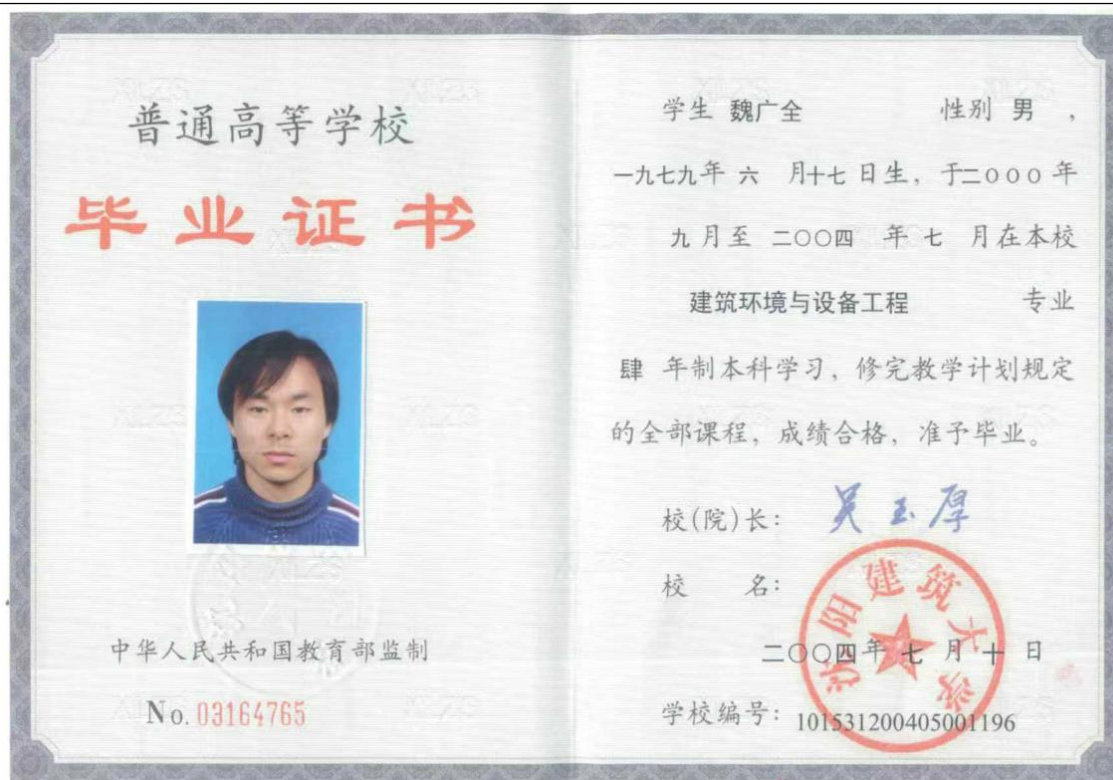 普通高等学校
毕业证书
中华人民共和国教育部监制
No. 03164765
学生 魏广全 性别 男 ,
一九七九年 六 月十七 日生, 于二〇〇〇年
九 月至 二〇〇四 年 七 月在本校
建筑环境与设备工程 专业
肆 年制本科学习, 修完教学计划规定
的全部课程, 成绩合格, 准予毕业。
校(院)长: 吴玉厚
校 名:
沈阳建筑大学
二〇〇四年 七 月 十 日
学校编号: 101531200405001196